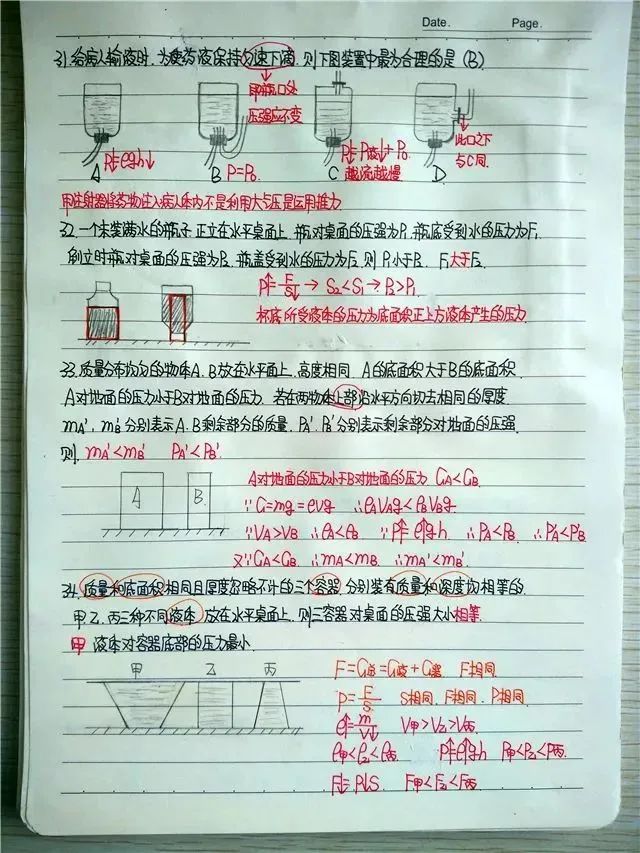 Date. Page.
31. 给病人输液时, 为使药液保持匀速下滴, 则下图装置中最为合理的是 (B)
即瓶口处
压强应不变
此口之下
与C同.
A P↓=ρgh↓
B P=P₀.
C P↓=P液↓+P₀
越流越慢
D
甲注射器将药物注入病人体内不是利用大气压是运用推力
32. 一个未装满水的瓶子, 正立在水平桌面上, 瓶对桌面的压强为P₁ 瓶底受到水的压力为F₁
倒立时瓶对桌面的压强为P₂ 瓶盖受到水的压力为F₂, 则 P₁小于P₂ F₁大于F₂
P↑=F/S↓ → S₂<S₁ → P₂>P₁
杯底所受液体的压力为底面积正上方液体产生的压力
33. 质量分布均匀的物体A、B放在水平面上, 高度相同, A的底面积大于B的底面积.
A对地面的压力小于B对地面的压力, 若在两物体上部沿水平方向切去相同的厚度
mA', mB'分别表示A、B剩余部分的质量, PA'、PB'分别表示剩余部分对地面的压强.
则 mA'<mB' PA'<PB'.
A B
A对地面的压力小于B对地面的压力 GA<GB.
∵G=mg=ρvg ∴ρAVAg<ρBVBg.
∵VA>VB ∴ρA<ρB. ∵P↑=ρ↑gh ∴PA<PB. ∴P'A<P'B
又∵GA<GB. ∴mA<mB. ∴mA'<mB'.
34. 质量和底面积相同且厚度忽略不计的三个容器, 分别装有质量和深度均相等的
甲、乙、丙三种不同液体, 放在水平桌面上, 则三容器对桌面的压强大小相等
甲 液体对容器底部的压力最小.
甲 乙 丙
F=G总=G液+G器 F相同.
P=F/S S相同. F相同. P相同.
ρ↑=m/V↓ V甲>V乙>V丙
ρ甲<ρ乙<ρ丙 P↑=ρ↑gh P甲<P乙<P丙.
F↓=P↓S. F甲<F乙<F丙